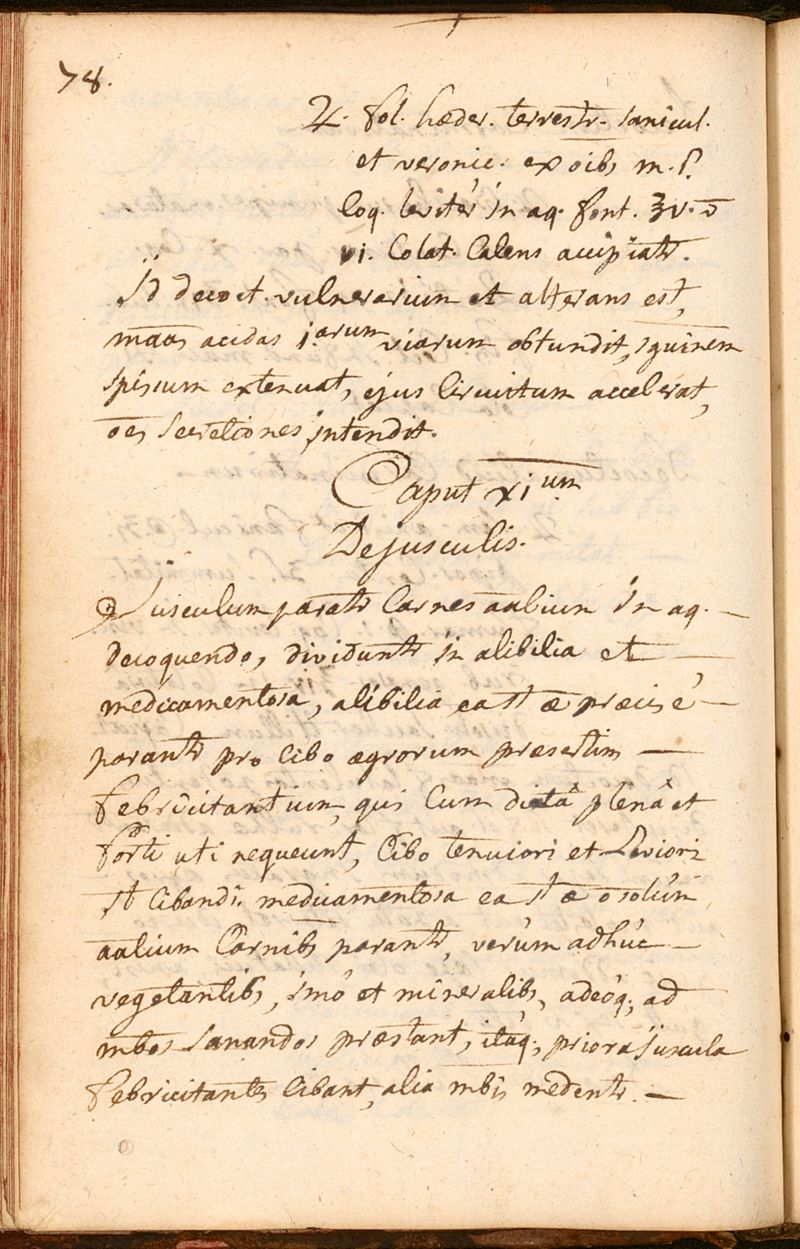 78.
♃. fol. hæder. terrestr. sanicul.
et veronic. ex oibs m. P.
Coq. levitér in aq. font. ℥v.
vi. Colat. Calens accipiatr.
Id decoct. vulnerarium et alterans est,
maās acidas 1.arum viarum obtundit, sguinem
spissum extenuat, ejus Circuitum accelerat,
oēs Secretiones intendit.
Caput xi um
De jusculis.
Jusculum paratr Carnes aalium in aq. —
decoquendo, dividuntr in alibilia et —
medicamentosa, alibilia ea st æ præcisé —
parantr pro Cibo ægrorum præsertim —
febricitantium, qui Cum diætâ plenâ et
forti uti nequeunt, Cibo tenuiori et Leviori
st Cibandi. medicamentosa ea st æ ō solùm
aalium Carnibs parantr, verùm adhúc —
vegetantibs, imó et mineralibs, adeóq; ad
mbos Sanandos præstant, itàq; priora juscula
febricitantes Cibant, alia mbis medentr. —